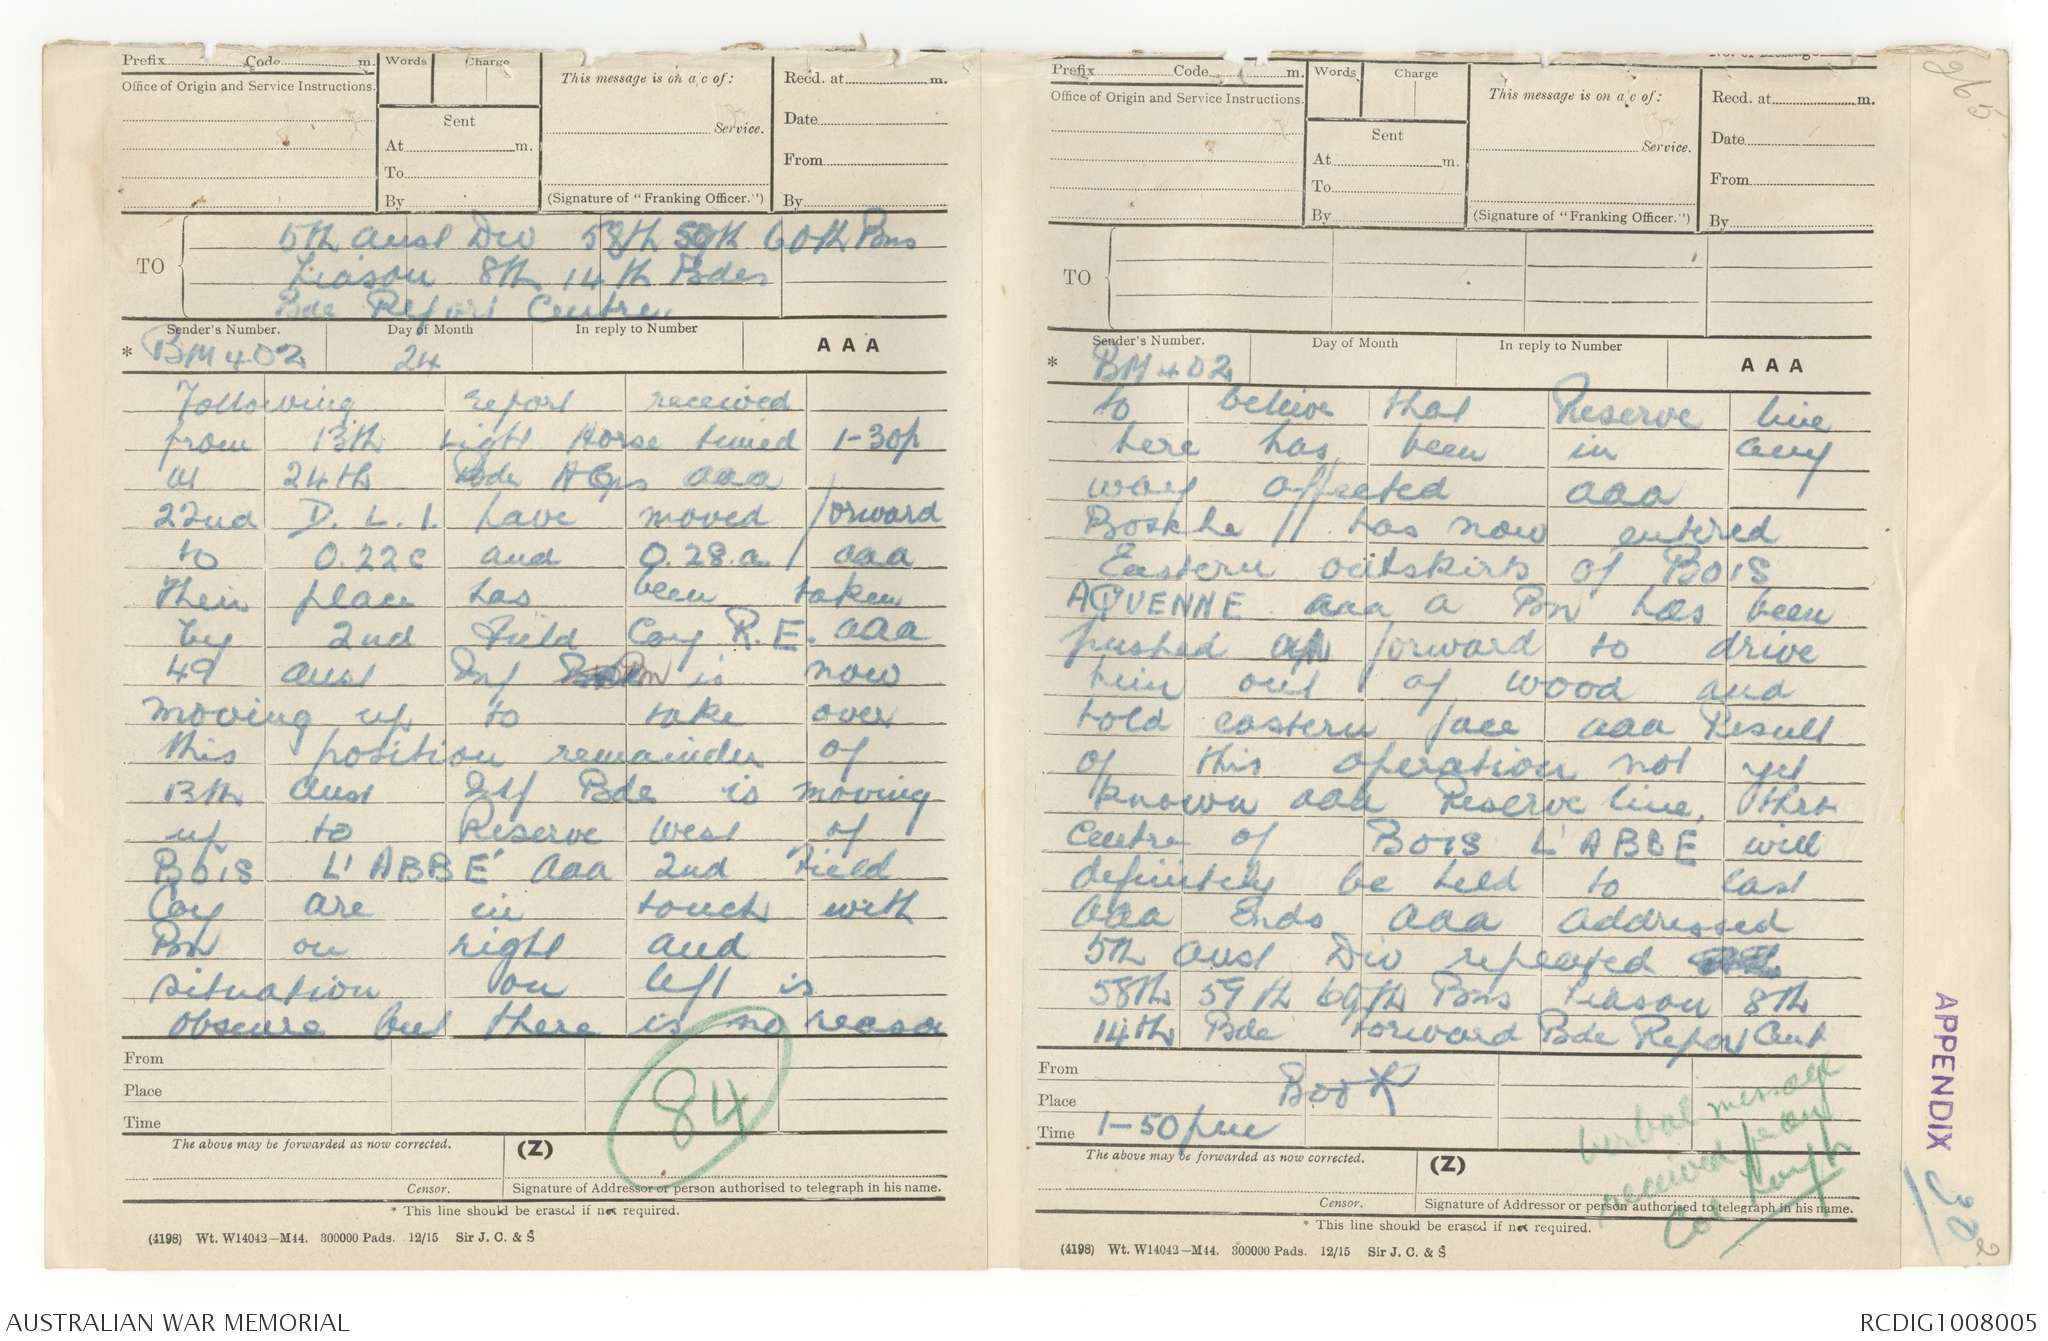 Prefix Code m.
Words
Charge
Office of Origin and Service Instructions.
Sent
At m.
To
By
This message is on a/c of:
Service.
(Signature of "Franking Officer.")
Recd. at m.
Date
From
By
TO
5th Aust Div 58th 59th 60th Bns
Liason 8th 14th Bdes
Bde Report Centre
Sender's Number.
Day of Month
In reply to Number
AAA
* BM 402
24
Following report received
from 13th Light Horse timed 1-30p
at 24th Bde HQrs aaa
22nd D.L.I. have moved forward
to O.22c and O.28.a aaa
their place has been taken
by 2nd Field Coy R.E. aaa
49 Aust Inf Bn is now
moving up to take over
this position remainder of
13th Aust Inf Bde is moving
up to Reserve west of
BOIS L'ABBÉ aaa 2nd Field
Coy are in touch with
Bn on right and
situation on left is
obscure but there is no reason
From
Place
Time
84
The above may be forwarded as now corrected.
(Z)
Censor.
Signature of Addressor or person authorised to telegraph in his name.
* This line should be erased if not required.
(4198) Wt. W14042-M44. 300000 Pads. 12/15 Sir J. C. & S
Prefix Code m.
Words
Charge
Office of Origin and Service Instructions.
Sent
At m.
To
By
This message is on a/c of:
Service.
(Signature of "Franking Officer.")
Recd. at m.
Date
From
By
TO
Sender's Number.
Day of Month
In reply to Number
AAA
* BM 402
to believe that Reserve line
here has been in any
way affected aaa
Boshe has now entered
Eastern outskirts of BOIS
AQUENNE aaa a Bn has been
pushed forward to drive
him out of wood and
hold eastern face aaa Result
of this operation not yet
known aaa Reserve line, thro
centre of BOIS L'ABBE will
definitely be held to last
aaa Ends aaa addressed
5th Aust Div repeated
58th 59th 60th Bns Liason 8th
14th Bde forward Bde Report Cent
From
Place
Time
BOOK
1-50 pm
verbal message
received
Col
The above may be forwarded as now corrected.
(Z)
Censor.
Signature of Addressor or person authorised to telegraph in his name.
* This line should be erased if not required.
(4198) Wt. W14042-M44. 300000 Pads. 12/15 Sir J. C. & S
265
APPENDIX
AUSTRALIAN WAR MEMORIAL
RCDIG1008005